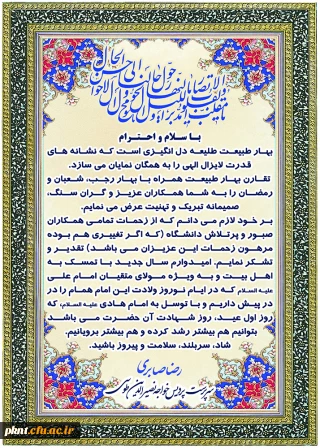 یا مقلب القلوب و الابصار یا مدبر اللیل و النهار یا محول الحول و الاحوال حول حالنا الی احسن الحال
با سلام و احترام
بهار طبیعت طلیعه دل انگیزی است که نشانه های
قدرت لایزال الهی را به همگان نمایان می سازد.
تقارن بهار طبیعت همراه با بهار رجب، شعبان و
رمضان را به شما همکاران عزیز و گران سنگ،
صمیمانه تبریک و تهنیت عرض می نمایم.
بر خود لازم می دانم که از زحمات تمامی همکاران
صبور و پرتلاش دانشگاه (که اگر تغییری هم بوده
مرهون زحمات این عزیزان می باشد) تقدیر و
تشکر نمایم. امیدوارم سال جدید با تمسک به
اهل بیت و به ویژه مولای متقیان امام علی
علیه السلام که در ایام نوروز ولادت این امام همام را در
پیش داریم و با توسل به امام هادی علیه السلام، که
روز اول عید، روز شهادت آن حضرت می باشد
بتوانیم هم بیشتر رشد کرده و هم بیشتر برویانیم.
شاد، سربلند، سلامت و پیروز باشید.
رضا صابری
سرپرست پردیس خواجه نصیرالدین طوسی
pknt.cfu.ac.ir